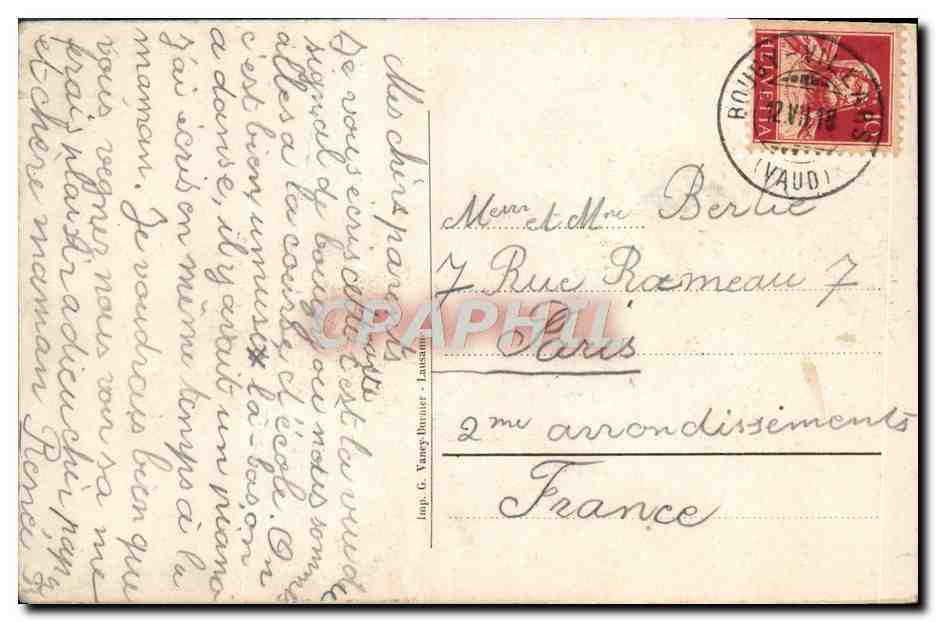 Mes chèrs parents
Je vous ecris c'est la vue de
signal de bougy ou nous somme
alles a la coirse d'école. On
c'est bien umuse la-bas, on
a danse, il y avait un piano
J'ai écris en même temps à la
maman. Je voudrais bien que
vous vegner nous voir sa me
ferais plaisir adieu chèr papa
et chère maman Renée
HELVETIA
10
12.VII.18
(VAUD)
Imp. G. Vaney-Burnier - Lausanne
et Mme Berlie
7 Rue Rameau 7
Paris
2me arrondissements
France
CPAPHIL